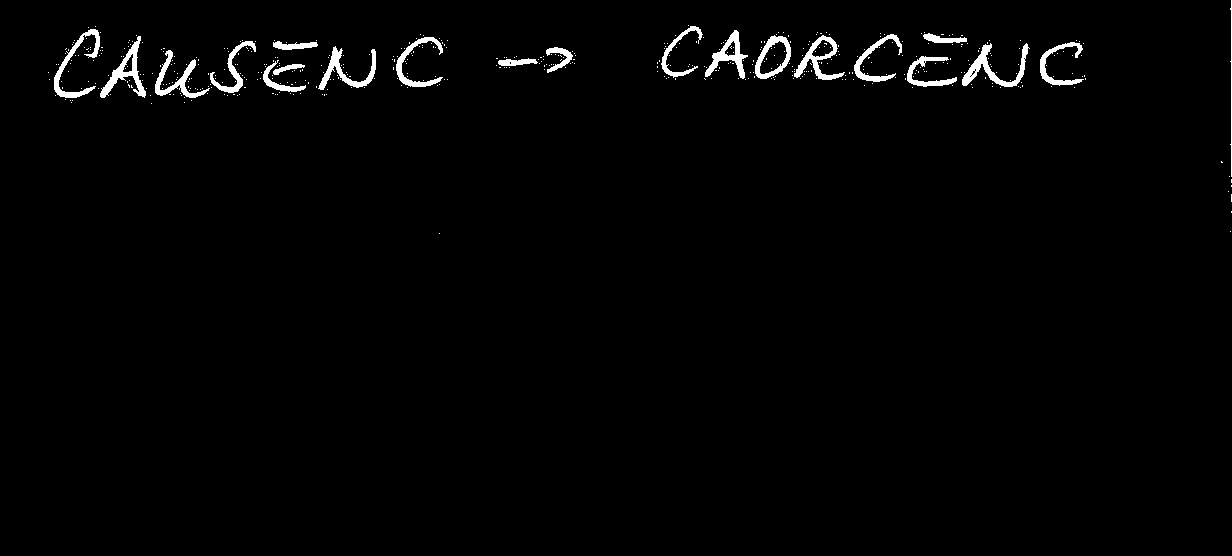 CAUSENC -> CAORCENC